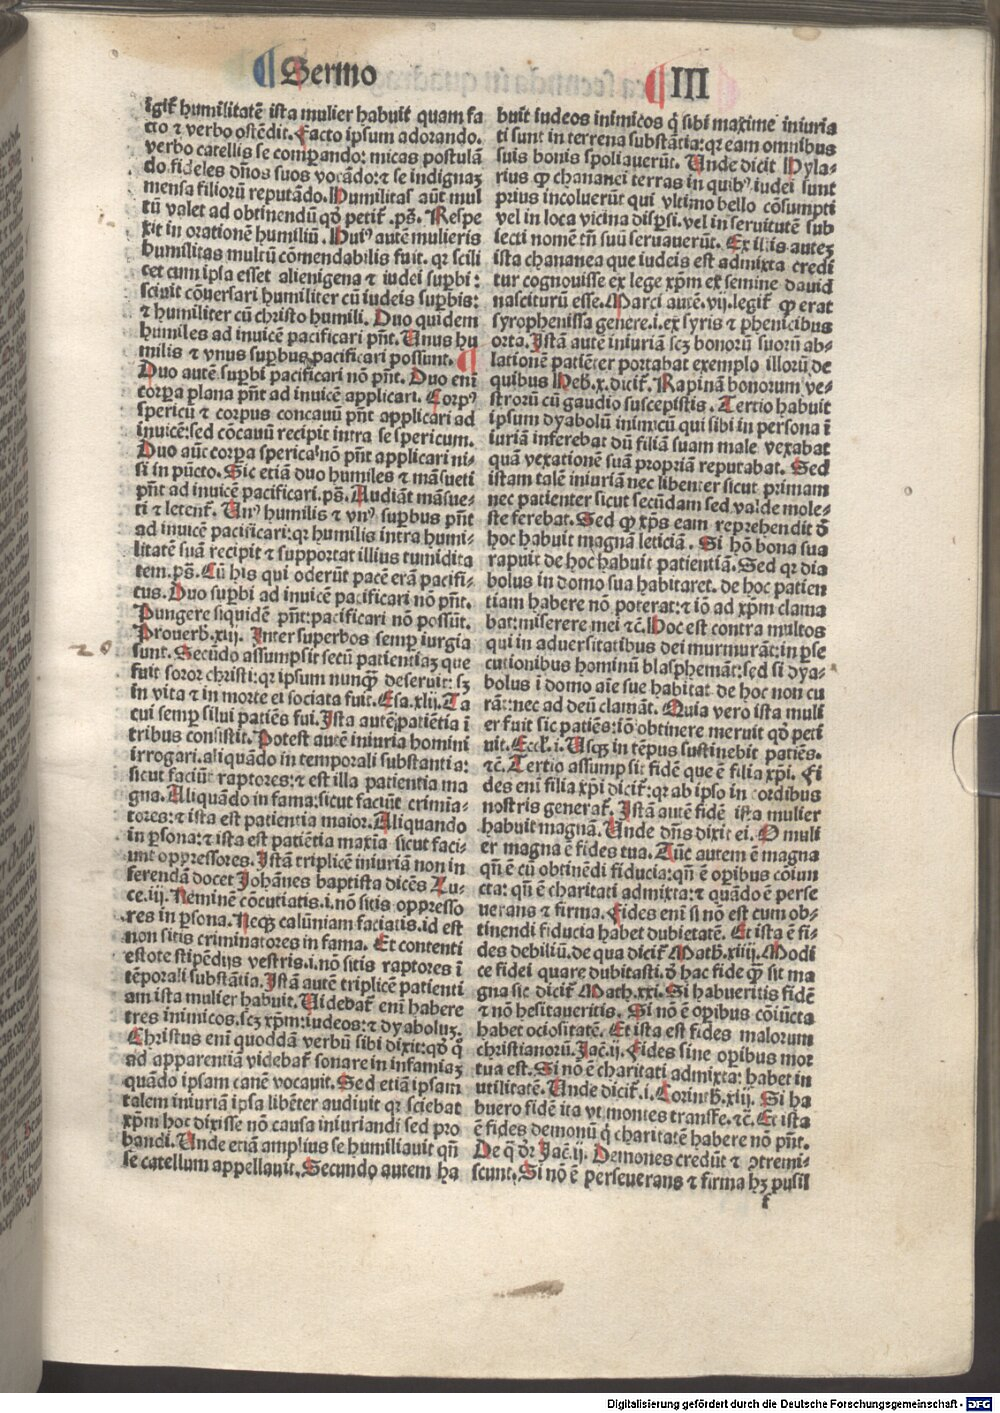 ¶ Sermo ¶ III
igit᷑ humilitatē ista mulier habuit quam fa
cto ⁊ verbo ostēdit. Facto ipsum adorando.
verbo catellis se comꝑando: micas postulā
do fideles dn̄os suos vocādo: ⁊ se indignaꝫ
mensa filioꝝ reputādo. Humilitas aūt mul
tū valet ad obtinendū qd̄ petit᷑. ps̄. Respe
xit in orationē humiliū. Huiꝰ autē mulieris
humilitas multū cōmendabilis fuit. qꝛ scili
cet cum ipsa esset alienigena ⁊ iudei suꝑbi:
sciuit cōuersari humiliter cū iudeis suꝑbis:
⁊ humiliter cū christo humili. Duo quidem
humiles ad inuicē pacificari pn̄t. Unus hu
milis ⁊ vnus suꝑbus pacificari possunt. ¶
Duo autē suꝑbi pacificari nō pn̄t. Duo enī
corpa plana pn̄t ad inuicē applicari. Corpꝰ
spericū ⁊ corpus concauū pn̄t applicari ad
inuicē: sed cōcauū recipit intra se spericum.
Duo aūt corpa sperica nō pn̄t applicari ni-
si in pūcto. Sic etiā duo humiles ⁊ māsueti
pn̄t ad inuicē pacificari. ps̄. Audiāt māsue-
ti ⁊ letent᷑. Unꝰ humilis ⁊ vnꝰ suꝑbus pn̄t
ad inuicē pacificari: qꝛ humilis intra humi-
litatē suā recipit ⁊ supportat illius tumidita
tem. ps̄. Cū his qui oderūt pacē erā pacifi-
cus. Duo suꝑbi ad inuicē pacificari nō pn̄t.
Pungere siquidē pn̄t: pacificari nō possūt.
Prouerb̄. xiij. Inter superbos semꝑ iurgia
sunt. Secūdo assumpsit secū patientiaꝫ que
fuit soror christi: qꝛ ipsum nunqͣꝫ deseruit: sꝫ
in vita ⁊ in morte ei sociata fuit. Esa. xlij. Ta
cui semꝑ silui patiēs fui. Ista autē patiētia ī
tribus consistit. Potest autē iniuria homini
irrogari. aliquādo in temporali substantia:
sicut faciūt raptores: ⁊ est illa patientia ma
gna. Aliquādo in fama: sicut faciūt crimia-
tores: ⁊ ista est patientia maior. Aliquando
in ꝑsona: ⁊ ista est patiētia maxīa sicut faci-
unt oppressores. Istā triplicē iniuriā non in
ferendā docet Johānes baptista dicēs Lu-
ce. iij. Neminē cōcutiatis. i. nō sitis oppresso
res in ꝑsona. Neqꝫ calūniam faciatis. id est
non sitis criminatores in fama. Et contenti
estote stipēdijs vestris. i. nō sitis raptores ī
tēporali substātia. Istā autē triplicē patienti
am ista mulier habuit. Uidebat᷑ enī habere
tres inimicos. scꝫ xp̄m: iudeos: ⁊ dyaboluꝫ.
Christus enī quoddā verbū sibi dixit: qd̄ qͦ
ad apparentiā videbat᷑ sonare in infamiaꝫ
quādo ipsam canē vocauit. Sed etiā ipsam
talem iniuriā ipsa libēter audiuit qꝛ sciebat
xp̄m hoc dixisse nō causa iniuriandi sed pro
bandi. Unde etiā amplius se humiliauit qn̄
se catellum appellauit. Secundo autem ha
buit iudeos inimicos qͥ sibi maxime iniuria
ti sunt in terrena substātia: qꝛ eam omnibus
suis bonis spoliauerūt. Unde dicit Hyla-
rius ꝙ chananei terras in quibꝰ iudei sunt
prius incoluerūt qui vltimo bello cōsumpti
vel in loca vicina disꝑsi. vel in seruitutē sub
iecti nomē tn̄ suū seruauerūt. Ex illis auteꝫ
ista chananea que iudeis est admixta credi
tur cognouisse ex lege xp̄m ex semine dauid
nasciturū esse. Marci autē. vij. legit᷑ ꝙ erat
syrophenissa genere. i. ex syris ⁊ phenicibus
orta. Istā autē iniuriā scꝫ bonorū suorū ab-
lationē patiēter portabat exemplo illorū de
quibus Heb̄. x. dicit᷑. Rapinā bonorum ve-
strorū cū gaudio suscepistis. Tertio habuit
ipsum dyabolū inimicū qui sibi in persona ī
iuriā inferebat dū filiā suam male vexabat
quā vexationē suā propriā reputabat. Sed
istam talē iniuriā nec libenter sicut primam
nec patienter sicut secūdam sed valde mole-
ste ferebat. Sed ꝙ xp̄s eam reprehendit ď
hoc habuit magnā leticiā. Si hō bona sua
rapuit de hoc habuit patientiā. Sed qꝛ dia
bolus in domo sua habitaret. de hoc patien
tiam habere nō poterat: ⁊ iō ad xp̄m clama
bat: miserere mei ⁊c̄. Hoc est contra multos
qui in aduersitatibus dei murmurāt: in ꝑse
cutionibus hominū blasphemāt: sed si dya-
bolus ī domo aīe sue habitat de hoc non cu
rāt: nec ad deū clamāt. Quia vero ista muli
er fuit sic patiēs: iō obtinere meruit qd̄ peti
uit. Eccl̄. i. Usqꝫ in tēpus sustinebit patiēs.
⁊c̄. Tertio assumpsit fidē que ē filia xp̄i. Fi
des enī filia xp̄i dicit᷑: qꝛ ab ipso in cordibus
nostris generat᷑. Istā autē fidē ista mulier
habuit magnā. Unde dn̄s dixit ei. O muli
er magna ē fides tua. Tūc autem ē magna
qn̄ ē cū obtinēdi fiducia: qn̄ ē opibus cōiun
cta: qn̄ ē charitati admixta: ⁊ quādo ē perse
uerans ⁊ firma. Fides enī si nō est cum ob-
tinendi fiducia habet dubietatē. Et ista ē fi-
des debiliū. de qua dicit᷑ Math̄. xiiij. Modi
ce fidei quare dubitasti. ď hac fide qͣꝫ sit ma
gna sic dicit᷑ Math. xxi. Si habueritis fidē
⁊ nō hesitaueritis. Si nō ē opibus cōiūcta
habet ociositatē. Et ista est fides malorum
christianorū. Jac̄. ij. Fides sine opibus mor
tua est. Si nō ē charitati admixta: habet in
utilitatē. Unde dicit᷑. i. Corinth̄. xiij. Si ha
buero fidē ita vt montes transfe. ⁊c̄. Et ista
ē fides demonū qͥ charitatē habere nō pn̄t.
De qͣ dr̄ Jac̄. ij. Demones credūt ⁊ ꝯtremi-
scunt. Si nō ē perseuerans ⁊ firma hꝫ pusil
f
Digitalisierung gefördert durch die Deutsche Forschungsgemeinschaft - DFG